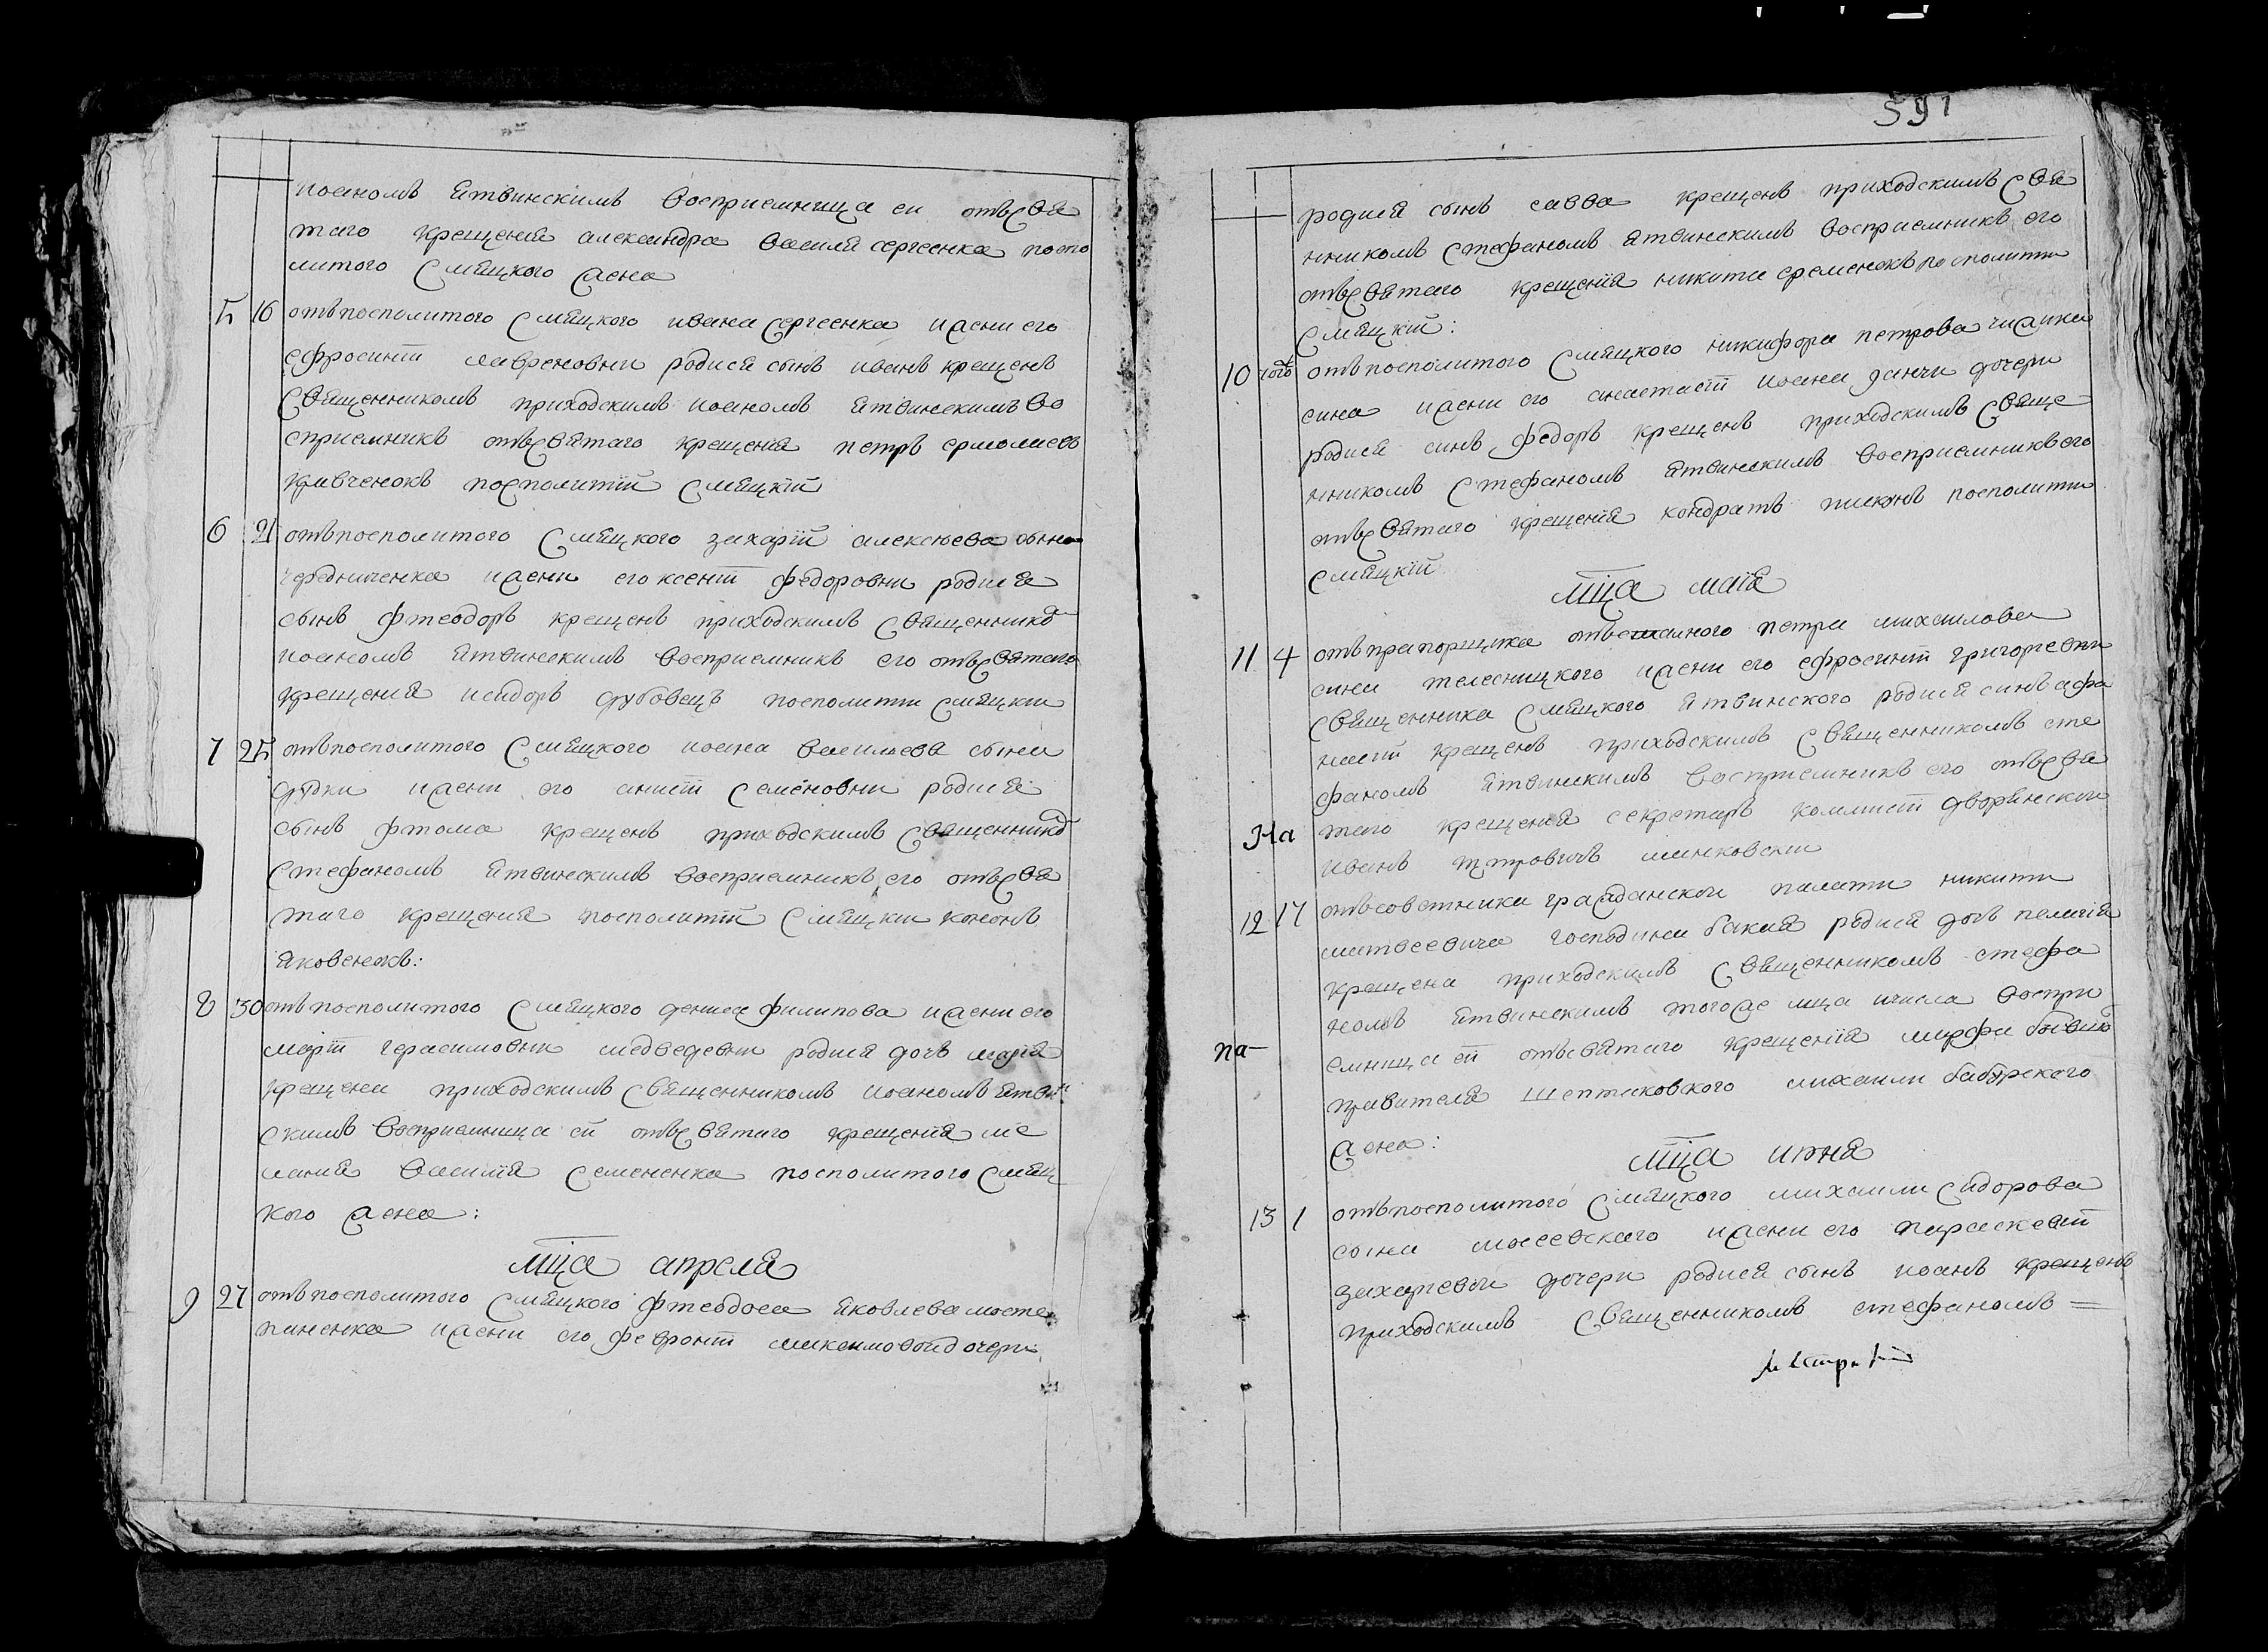 иоаномъ ятвинскимъ восприемница еи отъ свя
таго крещения александра василя сергеенка поспо
литого смяцкого жена
5 16 отъ посполитого смяцкого ивана сергеенка и жени его
ефросинїи лавреновни родися сынъ иванъ крещенъ
священникомъ приходскимъ иоаномъ ятвинскимъ во
сприемникъ отъ святаго крещения петръ ермолаевъ
кривченокъ посполитїи смяцкїи
6 21 отъ посполитого смяцкого захарїи алексѣева сына
чередниченка и жени его ксенїи федоровни родися
сынъ фтеодоръ крещенъ приходскимъ священнико
иоаномъ ятвинскимъ восприемникъ его отъ святаго
крещения исидоръ дубовецъ посполитии смяцкии
7 25 отъ посполитого смяцкого иоана василиева сына
дудки и жени его аннїи семеновни родися
сынъ фтома крещенъ приходскимъ священнико
стефаномъ ятвинскимъ восприемникъ его отъ свя
таго крещения посполитїи смяцкии кононъ
яковенокъ:
8 30 отъ посполитого смяцкого дениса филипова и жени его
марїи герасимовни медведевни родися дочъ марїя
крещена приходскимъ священникомъ иоаномъ ятвин
скимъ восприемница ей отъ святаго крещения ме
лания василїя семененка посполитого смяц
кого жена:
мца апреля
9 27 отъ посполитого смяцкого фтеодоса яковлева
и жени его февронїи максимовой дочери
591
родися сынъ савва крещенъ приходскимъ свя
нникомъ стефаномъ ятвинскимъ восприемникъ его
отъ святаго крещенїя никита еременокъ посполити
смяцкїи:
10 того отъ посполитого смяцкого никифора петрова
сина и жени его анастасїи иоана дочери
родися синъ федоръ крещенъ приходскимъ свяще
нникомъ стефаномъ ятвинскимъ восприемникъ его
отъ святаго крещенїя кондратъ посполити
смяцкїи
мца маїя
11 4 отъ прапорщика петра михаилова
сина телесницкого и жени его ефросинїи григориевни
священника смяцкого ятвинского родися синъ афа
насїи крещенъ приходскимъ священникомъ сте
фаномъ ятвинскимъ восприемникъ его отъ свя
На таго крещения секретаръ дворянскои
иванъ петровичъ минковскии
12 17 отъ советника гражданскои палати никити
матвеевича господина бакая родися дочъ пелагїя
крещена приходскимъ священникомъ стефа
номъ ятвинскимъ тогоже мца и числа воспри
па емница ей отъ святаго крещенїя марфа
правителя михаили
жена:
мца июня
13 1 отъ посполитого смяцкого михаили сидорова
сына и жени его параскевїи
захариевой дочери родися сынъ иоанъ крещенъ
приходскимъ священникомъ стефаномъ =